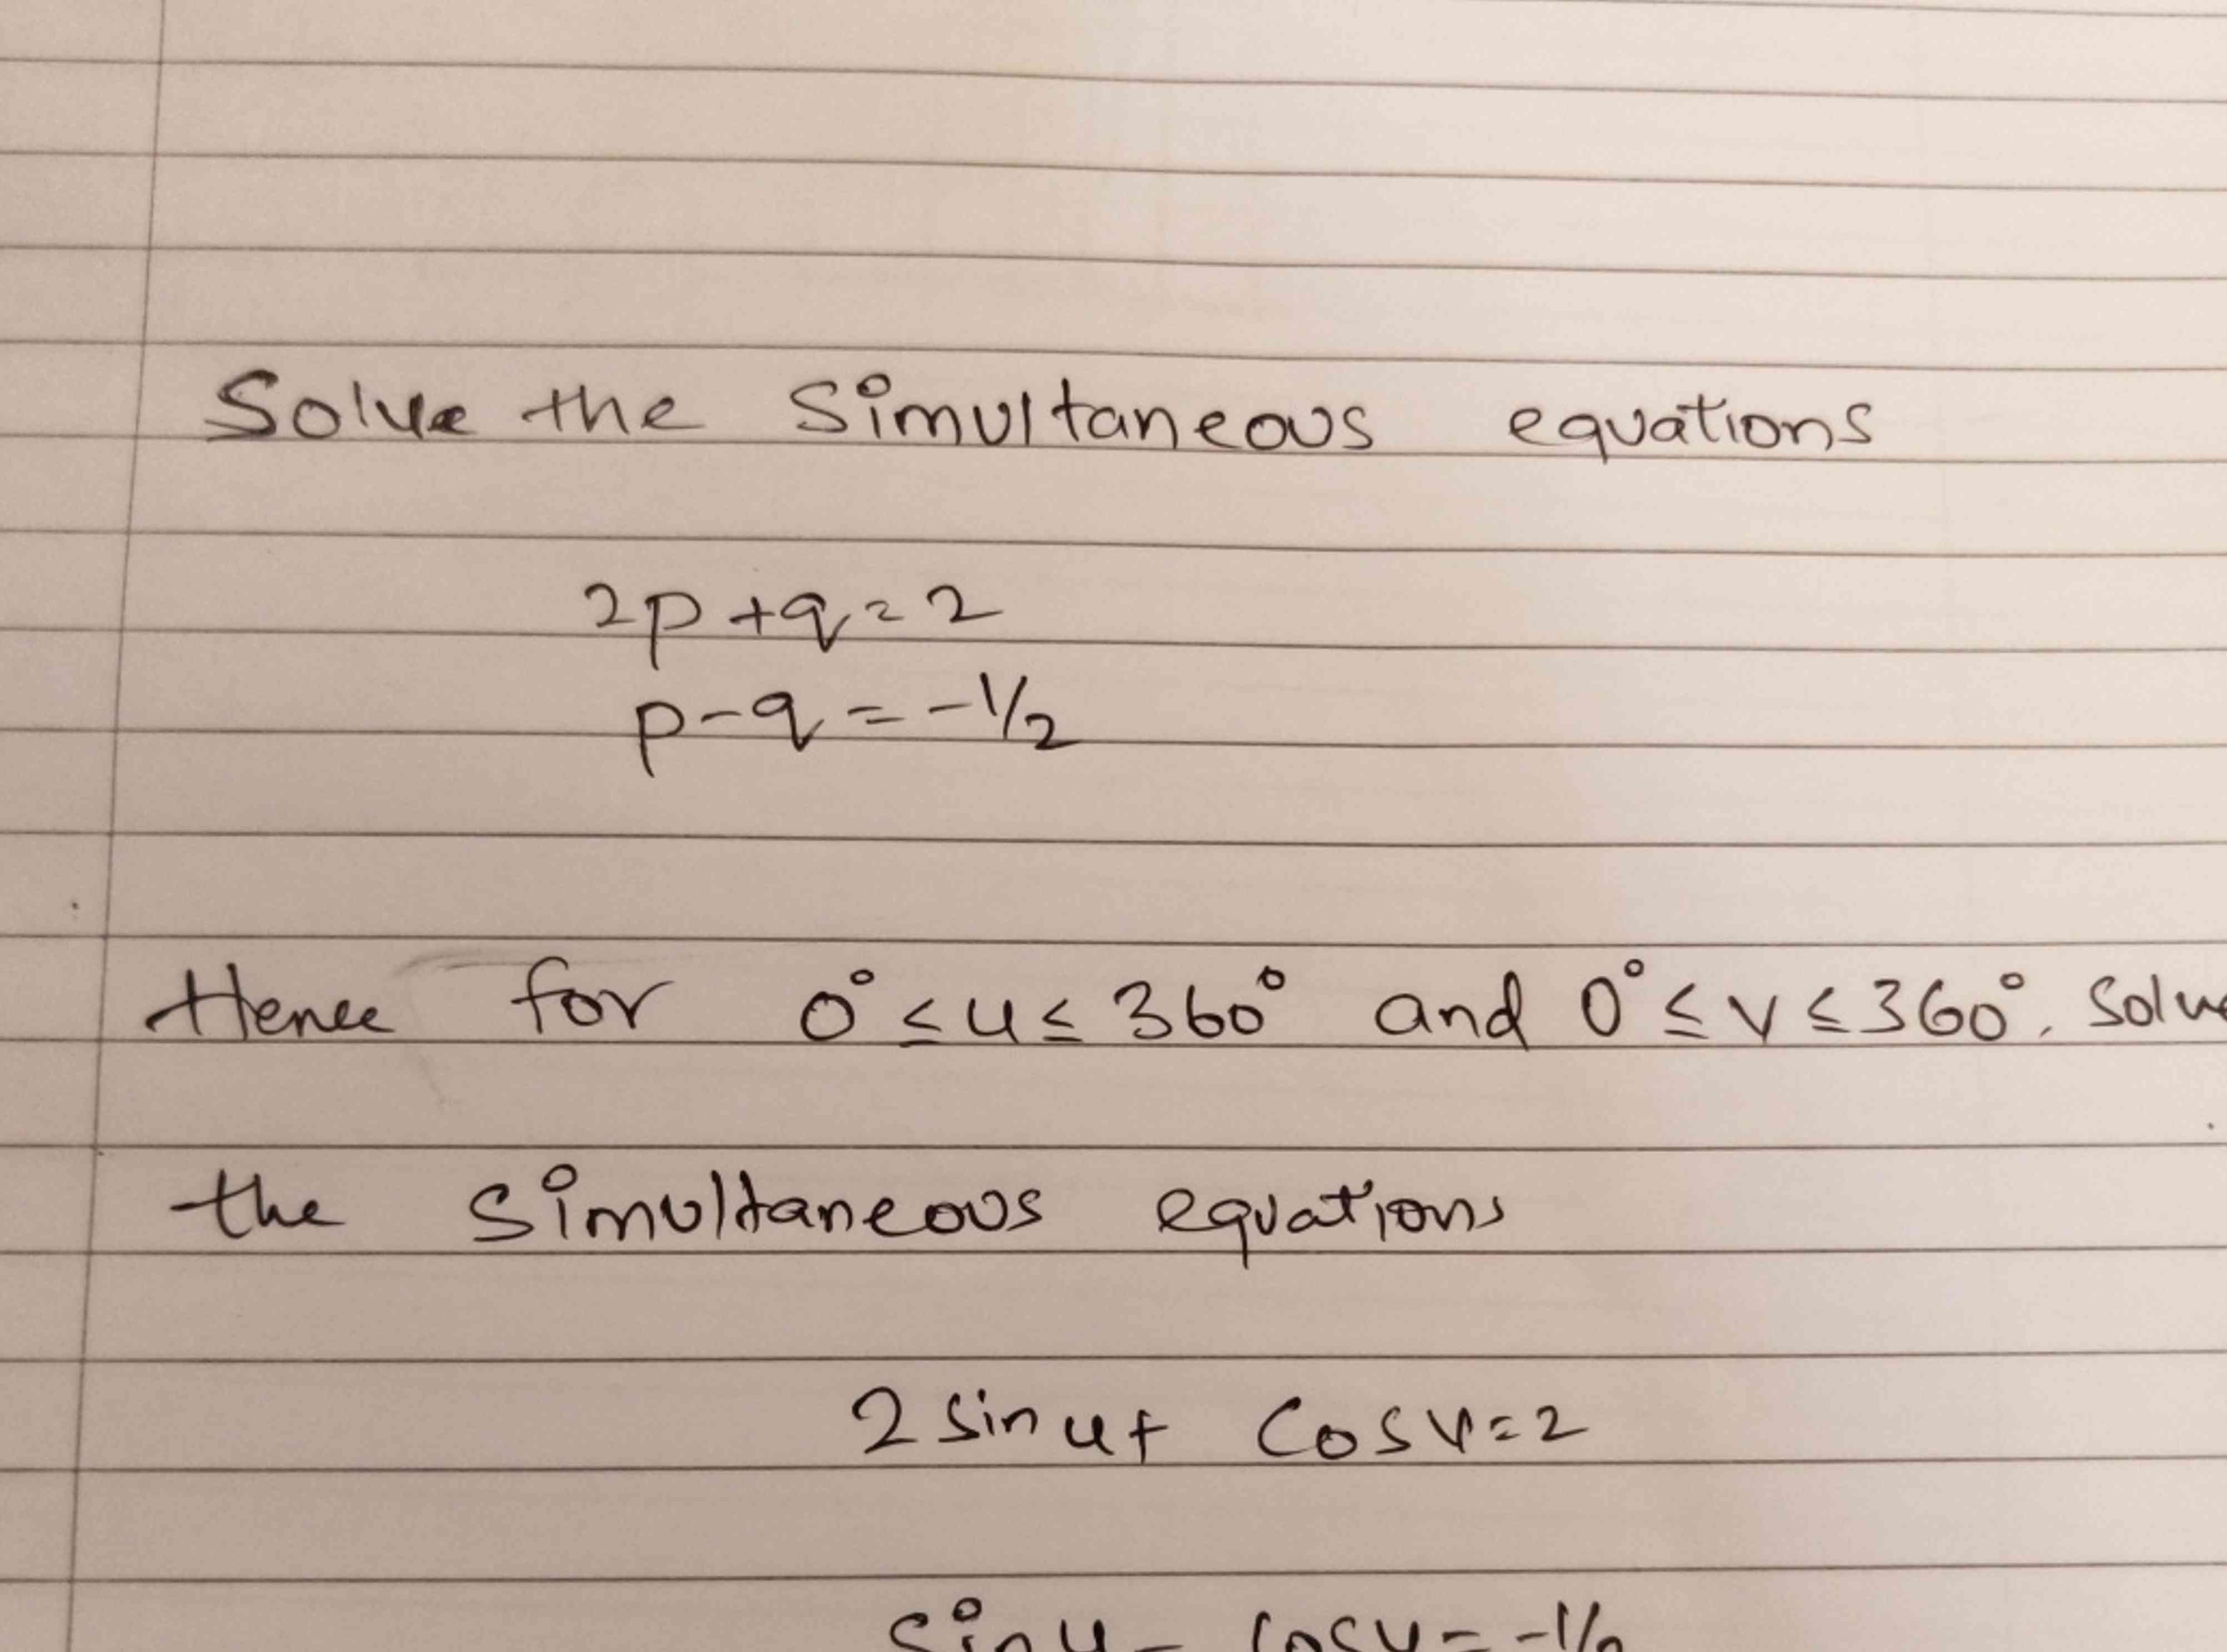 Solve the Simultaneous equations
2p+q=2
p-q=-1/2
Hence for 0°≤u≤360° and 0°≤v≤360°. Solve
the simultaneous equations
2 sin u+ Cos v=2
sin u- cos v=-1/2